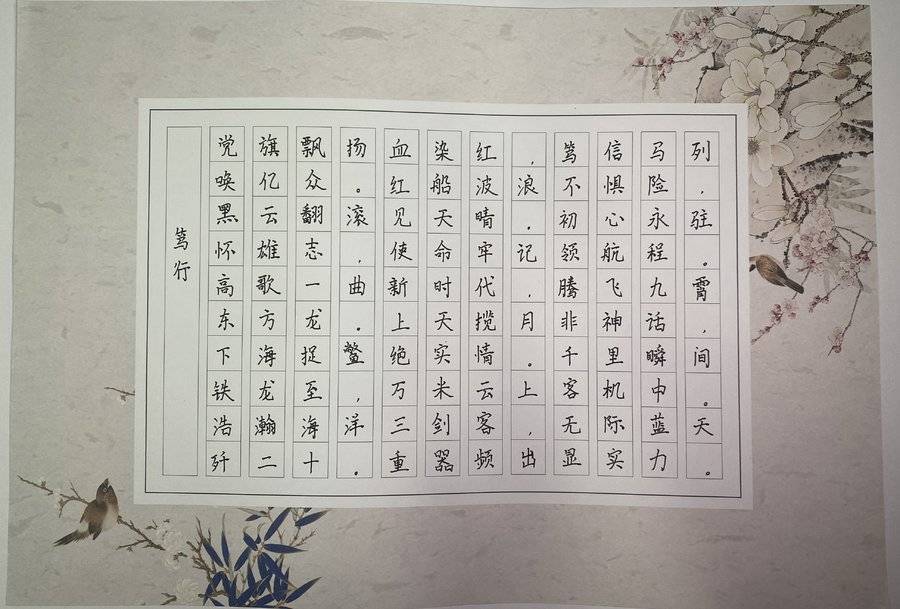 笃行
党旗飘扬血染红，笃信马列
唤亿众。红船波浪不惧险，
黑云翻滚见天晴。初心永驻
怀雄志，使命牢记领航程。
高歌一曲新时代，腾飞九霄
东方龙。上天揽月非神话，
下海捉鳖绝实情。千里瞬间
铁龙至，万米云上客机中。
浩瀚海洋三剑客，无际蓝天
歼二十。重器频出显实力。